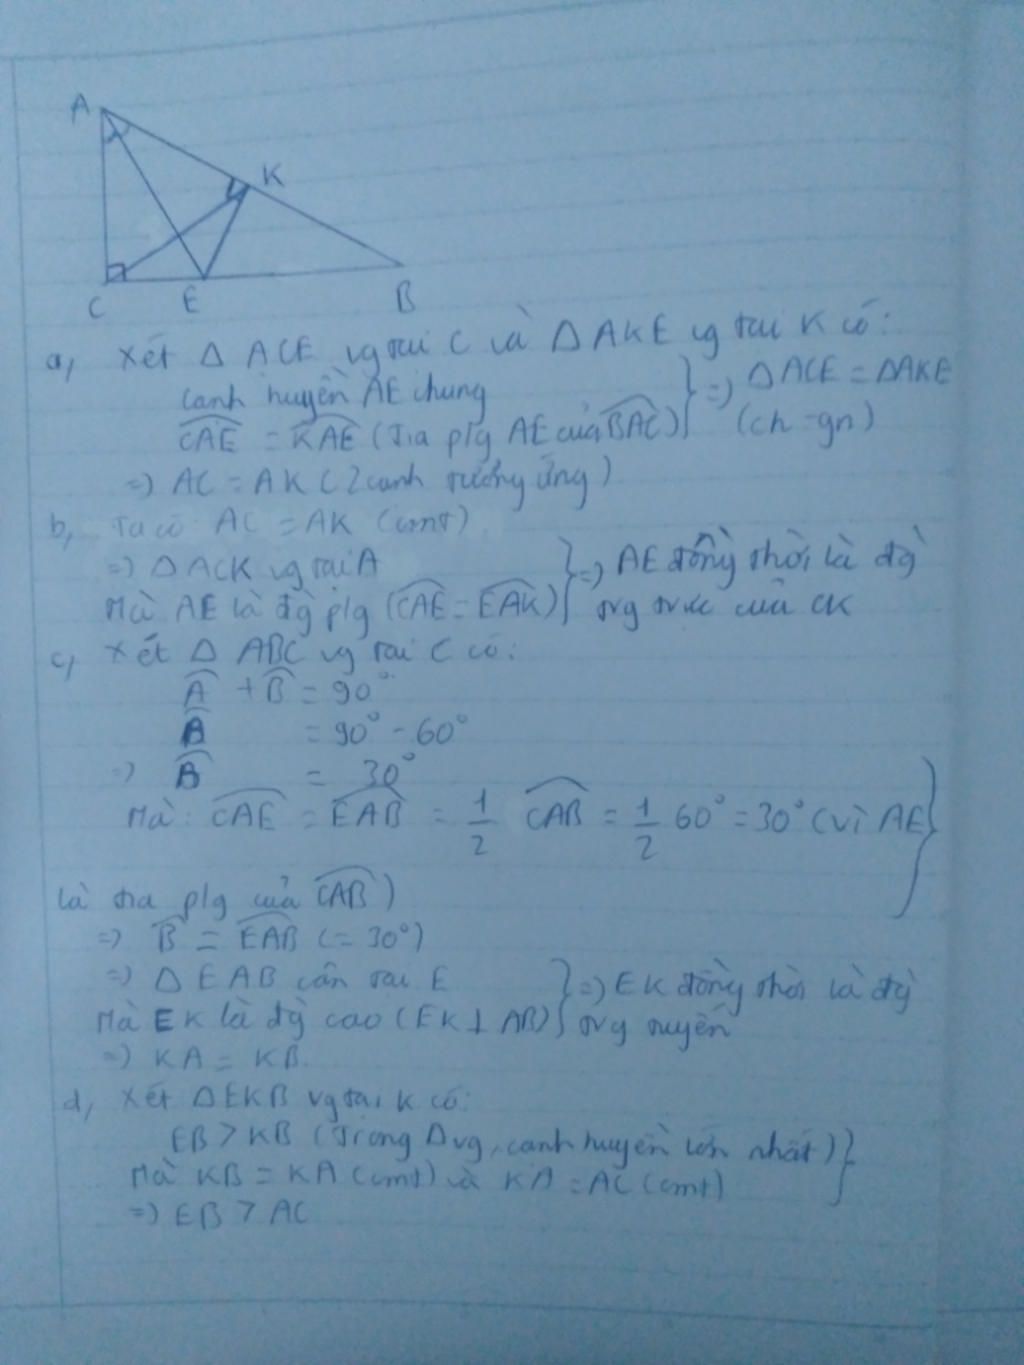 A
K
C E B
a, Xét Δ ACE vg tại C và Δ AKE vg tại K có:
cạnh huyền AE chung
CAE = KAE (Tia p/g AE của BAC) } => Δ ACE = ΔAKE (ch-gn)
=> AC = AK (2 cạnh tương ứng)
b, Ta có AC = AK (cmt)
=> Δ ACK vg tại A
Mà AE là đg p/g (CAE = EAK) } => AE đồng thời là đg trg trực của CK
c, Xét Δ ABC vg tại C có:
A + B = 90°
B = 90° - 60°
=> B = 30°
Mà: CAE = EAB = 1/2 CAB = 1/2 60° = 30° (vì AE
là tia p/g của CAB) }
=> B = EAB (= 30°)
=> Δ EAB cân tại E
Mà EK là đg cao (EK ⊥ AB) } => EK đồng thời là đg trg tuyến
=> KA = KB.
d, Xét ΔEKB vg tại K có:
EB > KB (Trong Δvg, cạnh huyền lớn nhất) }
Mà KB = KA (cmt) và KA = AC (cmt)
=> EB > AC